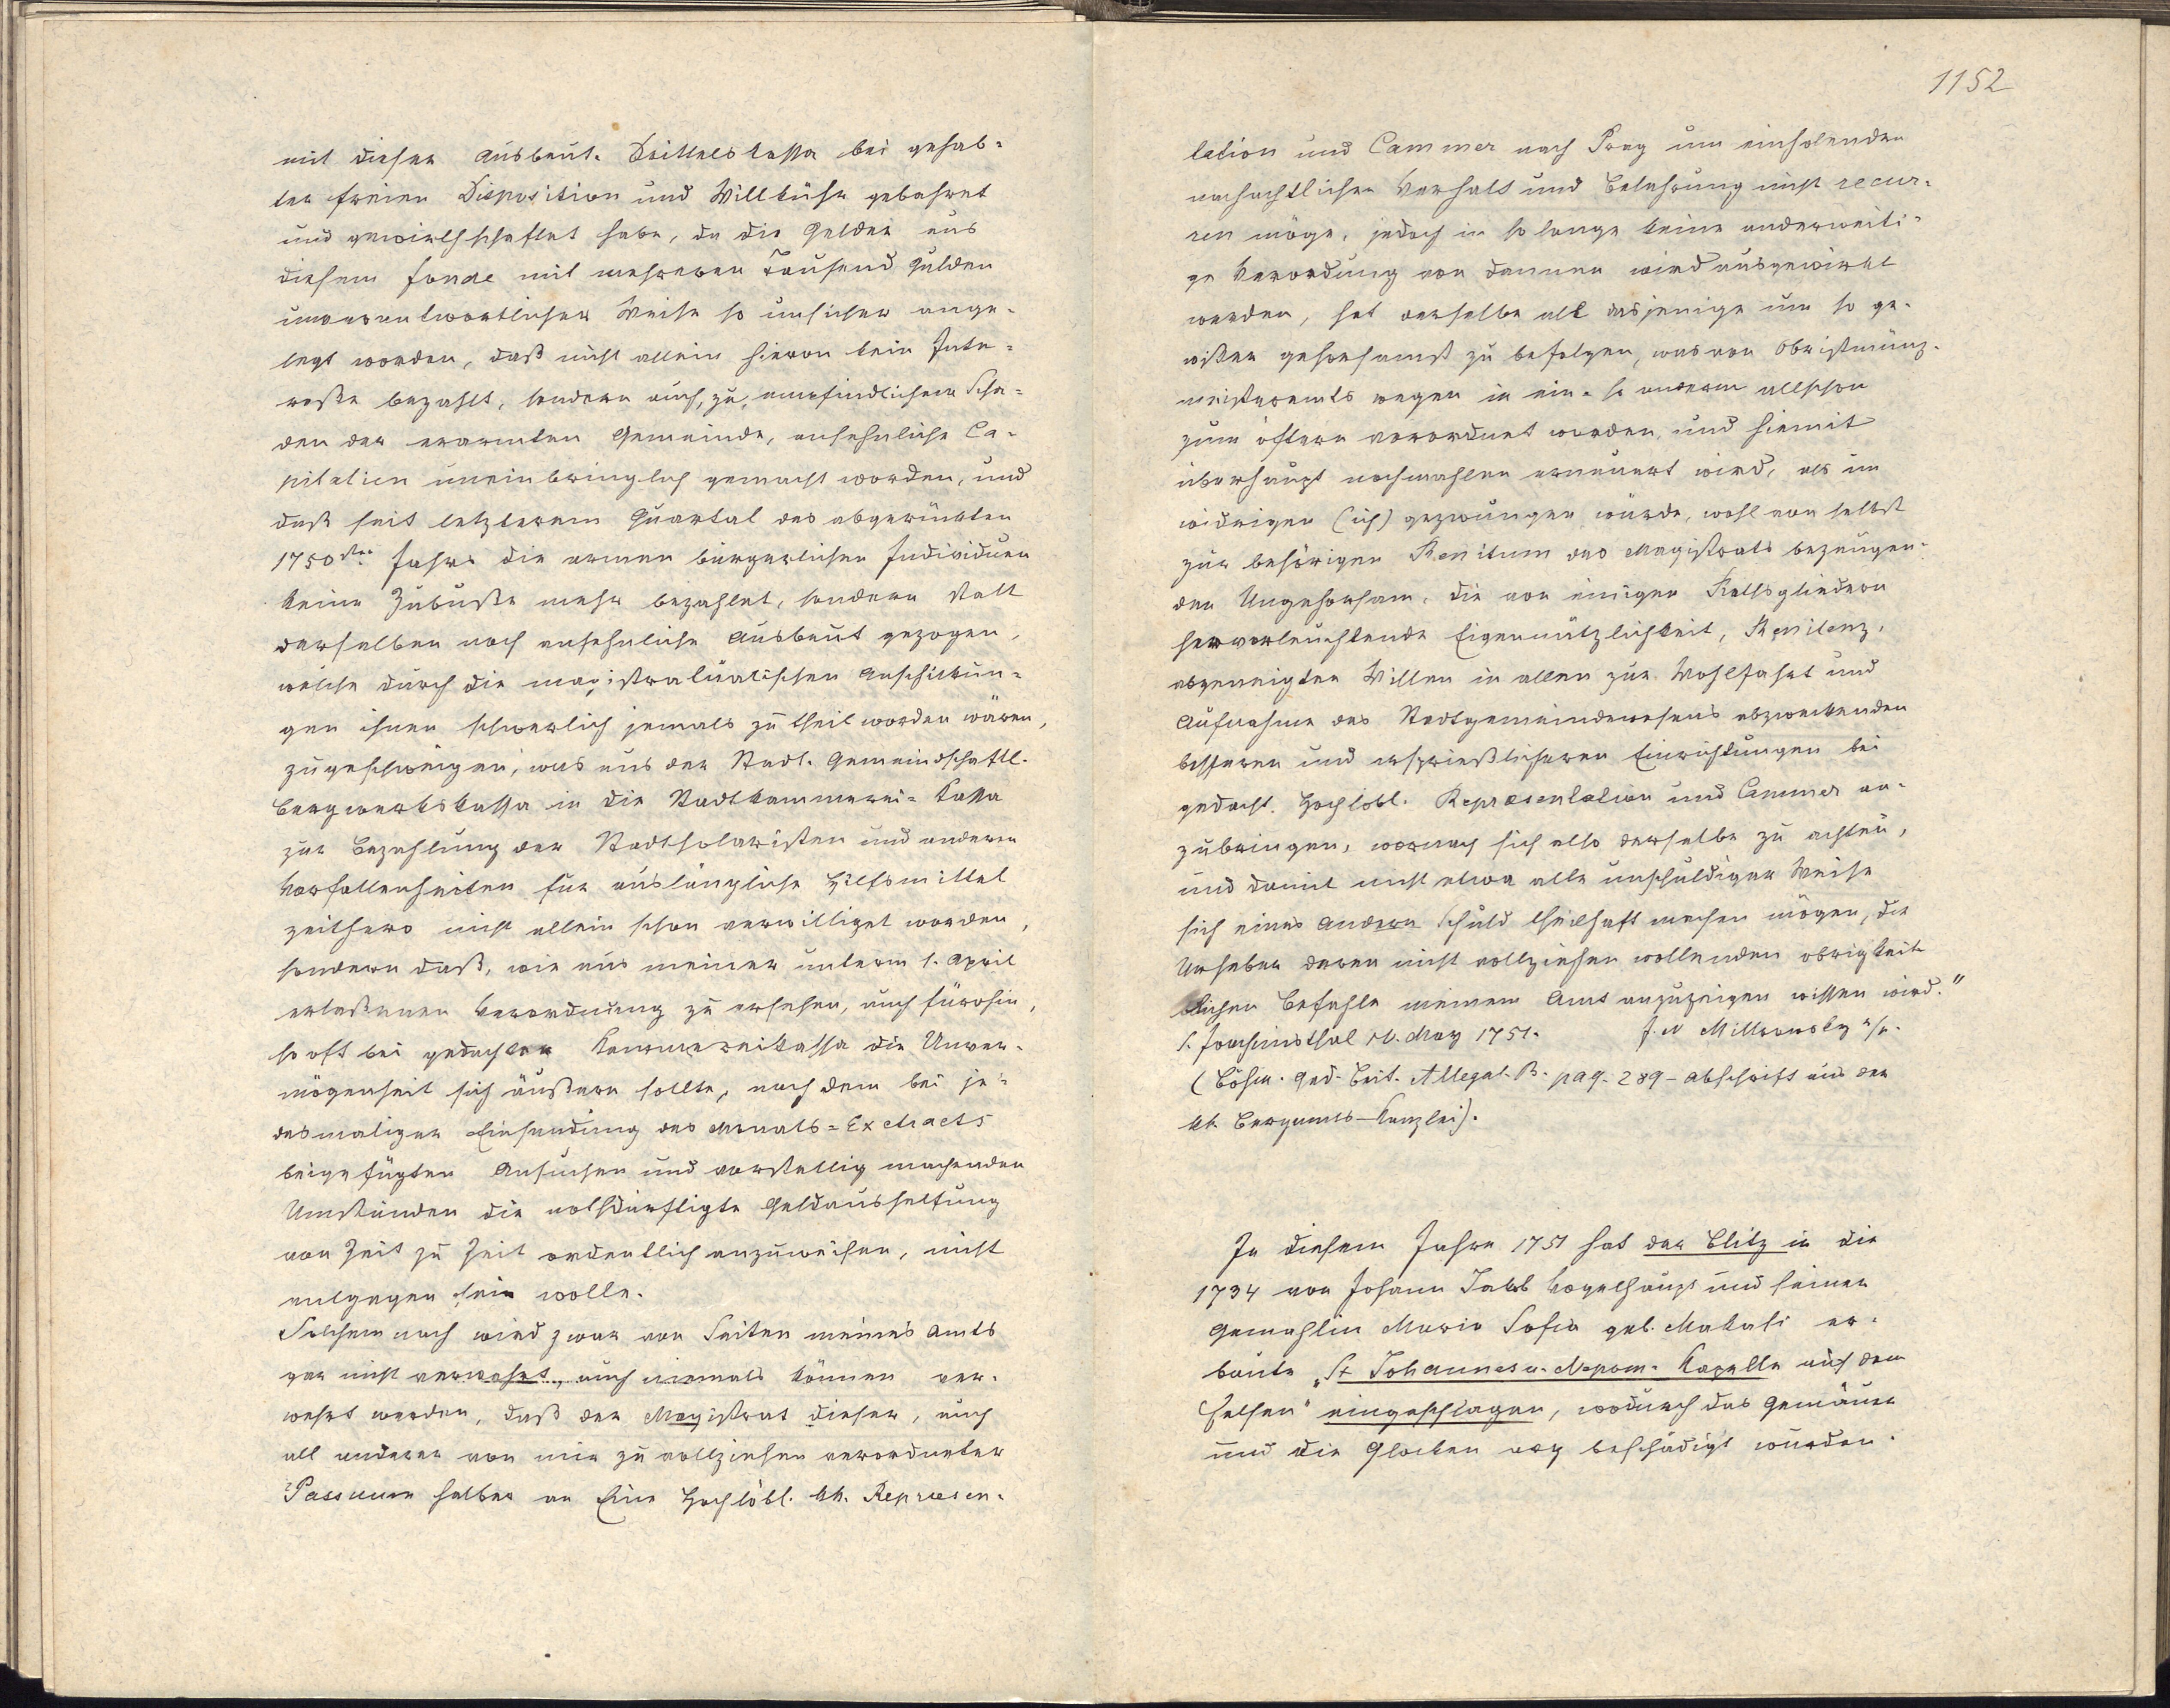 mit dieser Ausbeut. Drittelskassa bei gehab-
ter freien Disposition und Willkühr gebahret
und gewirthschaftet habe, da die Gelder aus
diesem fonde mit mehreren Tausend Gulden
unverantwortlicher Weise so unsicher ange-
legt worden, daß nicht allein hievon kein Inte-
resse bezahlt, sondern auch, zu empfindlichem Scha-
den der erarmten Gemeinde, ansehnliche Ca-
pitalien uneinbringlich gemacht worden, und
daß seit letzterem Quartal des abgerückten
1750sten Jahrs die armen bürgerlichen Individuen
keine Zubuße mehr bezahlet, sondern statt
derselben noch ansehnliche Ausbeut gezogen,
welche durch die magistratualischen Anschickun-
gen ihnen schwerlich jemals zu theil worden wären,
zugeschweigen, was aus der Stadt. Gemeindschaftl.
Bergwerkskassa in die Stadtkammerei-Kassa
zur Bezahlung der Stadtsolaristen und anderen
Vorfallenheiten für auslängliche Hilfsmittel
zeithero nicht allein schon verwilliget worden,
sondern daß, wie aus meiner unterm 1. April
erlaßenen Verordnung zu ersehen, auch fürohin,
so oft bei gedachter Kammereikassa die Unver-
mögenheit sich äußern sollte, nach dem bei je-
desmaliger Einsendung des Monats-Extracts
beigefügten Ansuchen und vorstellig machenden
Umständen die nothdürftigte Geldaushelfung
von Zeit zu Zeit ordentlich anzuweisen, nicht
entgegen sein wolle.
Solchemnach wird zwar von Seiten meines Amts
gar nicht verwehrt, auch niemals können ver-
wehrt werden, daß der Magistrat dieser, auch
all anderer von mir zu vollziehen verordneter
Passuum halber an Eine Hochlöbl. kk. Repræsen-
1152
tation und Cammer nach Prag um einholenden
nachachtlichen Verhalt und Belehrung nicht recur-
ren möge, jedoch in so lange keine anderweiti-
ge Verordung von dannen wird ausgewirkt
werden, hat derselbe all dasjenige um so ge-
wißer gehorsamst zu befolgen, was von Obristmünz-
meisteramts wegen in ein- so anderem allschon
zum öftern verordnet worden, und hiemit
überhaupt nochmahlen erneuert wird, als im
widrigen (ich) gezwungen würde, wohl von selbst
zur behörigen des Magistrats bezeugen-
den Ungehorsam, die von einigen Rathsgliedern
hervorleuchtende Eigennützlichkeit, Renitenz,
abgeneigten Willen in allen zur Wohlfahrt und
Aufnahme des Stadtgemeindewesens abzweckenden
besseren und ersprießlicheren Einrichtungen bei
gedacht. Hochlöbl. Repræsentation und Cammer an-
zubringen, wornach sich also derselbe zu achten,
und damit nicht etwa alle unschuldiger Weise
sich eines andern Schuld theilhaft machen mögen, die
Urheber deren nicht vollziehen wollenden obrigkeit-
lichen Befehle meinem Amt anzuzeigen wissen wird."
S. Joachimsthal May 1751. J. N Mittrowsky m/p.
(Böhm. Ged. Beit. Allegat. B. pag. 289 - Abschrift aus der
kk. Bergamts-Kanzlei).
In diesem Jahre 1751 hat der Blitz in die
1734 von Johann Jakob Vogelhaupt und seiner
Gemahlin Maria Sofia geb. Makasi er-
baute „St Johannes v. Nepom. Kapelle auf dem
Felsen" eingeschlagen, wodurch das Gemäuer
und die Glocken arg beschädigt wurden.